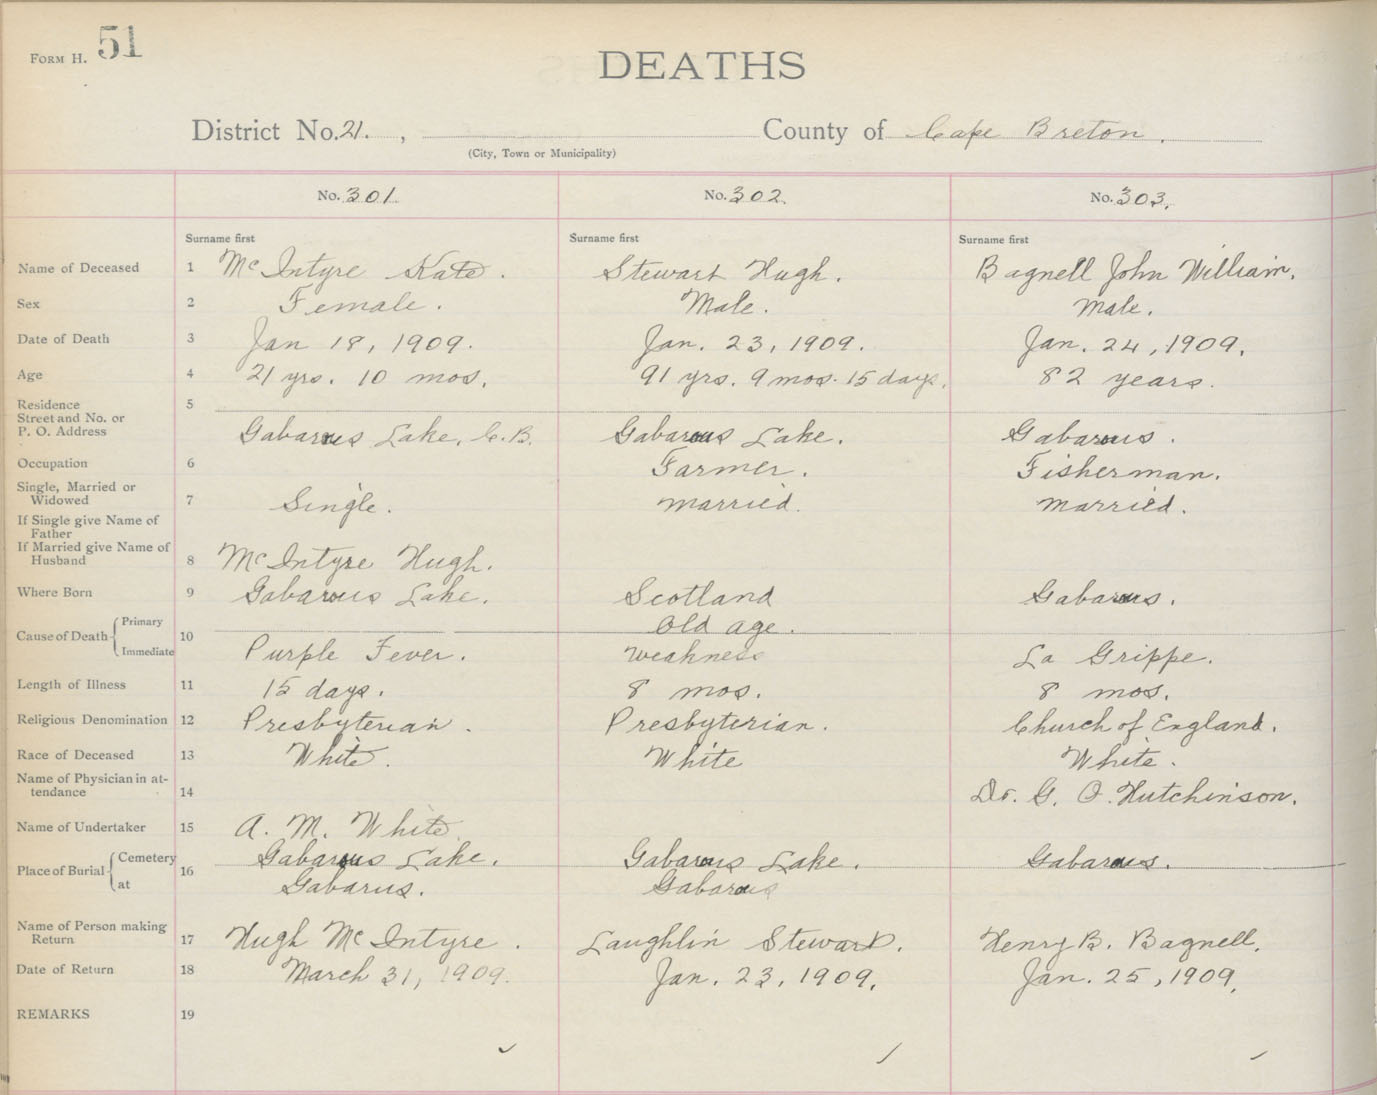 FORM H. 51
DEATHS
District No. 21. , County of Cape Breton.
(City, Town or Municipality)
No. 301. No. 302. No. 303.
Surname first Surname first Surname first
Name of Deceased 1 McIntyre Kate. Stewart Hugh. Bagnell John William.
Sex 2 Female. Male. Male.
Date of Death 3 Jan 18, 1909. Jan. 23, 1909. Jan. 24, 1909.
Age 4 21 yrs. 10 mos. 91 yrs. 9 mos. 15 days. 82 years.
Residence 5
Street and No. or
P. O. Address Gabarous Lake, C.B. Gabarous Lake. Gabarous.
Occupation 6 Farmer. Fisherman.
Single, Married or
Widowed 7 Single. Married. Married.
If Single give Name of
Father
If Married give Name of
Husband 8 McIntyre Hugh.
Where Born 9 Gabarous Lake. Scotland Gabarous.
Cause of Death Primary 10 Old age.
Immediate Purple Fever. Weakness La Grippe.
Length of Illness 11 15 days. 8 mos. 8 mos.
Religious Denomination 12 Presbyterian. Presbyterian. Church of England.
Race of Deceased 13 White. White White.
Name of Physician in at-
tendance 14 Dr. G. O. Hutchinson.
Name of Undertaker 15 A. M. White
Place of Burial Cemetery 16 Gabarous Lake. Gabarous Lake. Gabarous.
at Gabarus. Gabarous
Name of Person making
Return 17 Hugh McIntyre. Laughlin Stewart. Henry B. Bagnell.
Date of Return 18 March 31, 1909. Jan. 23, 1909. Jan. 25, 1909.
REMARKS 19